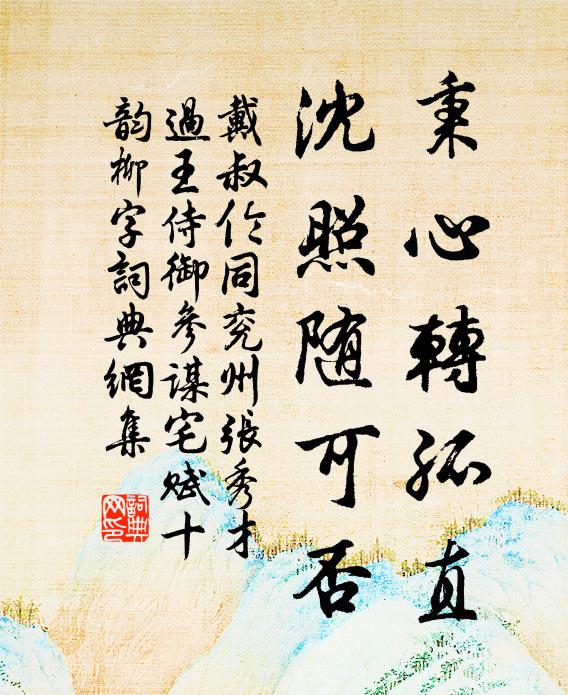 秉心轉孤直
沈照隨可否
戴叔伦同兖州張秀才
過王侍御參謀宅賦十
韵柳字詞典網集
詞典网印